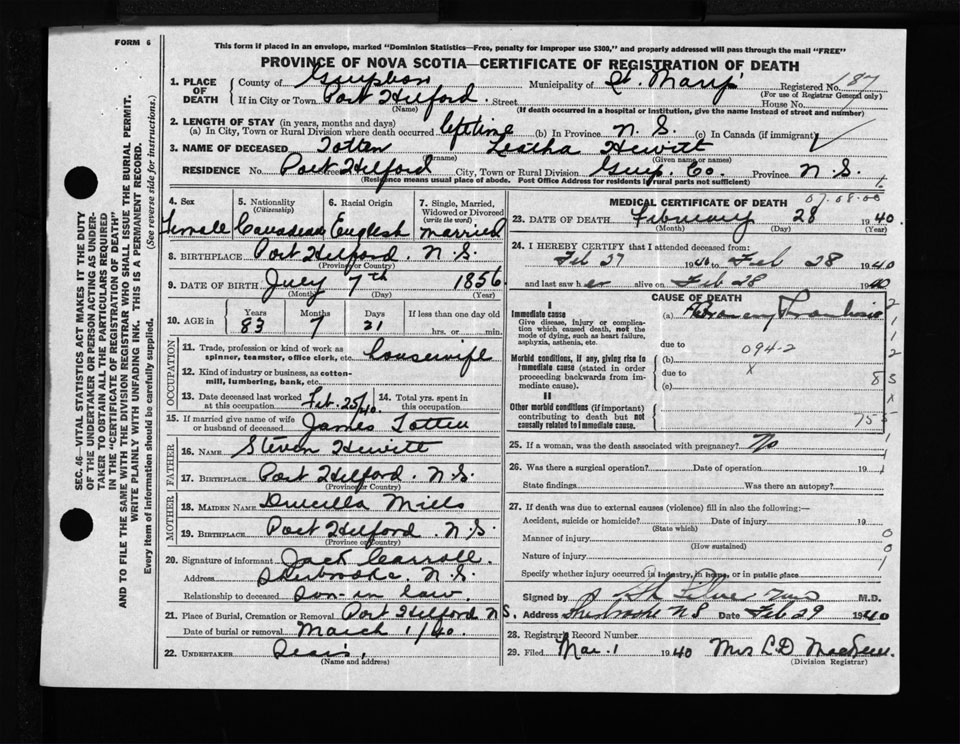 FORM 6
This form if placed in an envelope, marked "Dominion Statistics—Free, penalty for improper use $300," and properly addressed will pass through the mail "FREE"
PROVINCE OF NOVA SCOTIA—CERTIFICATE OF REGISTRATION OF DEATH
1. PLACE OF DEATH
County of Guysboro Municipality of St. Mary's Registered No. 187
(For use of Registrar General only)
If in City or Town Port Hilford. Street House No.
(Name) (If death occurred in a hospital or institution, give its name instead of street and number)
2. LENGTH OF STAY (in years, months and days)
(a) In City, Town or Rural Division where death occurred lifetime (b) In Province N.S. (c) In Canada (if immigrant)
3. NAME OF DECEASED Totten Leotha Hewitt
(Given name or names)
RESIDENCE No. Port Hilford City, Town or Rural Division Guy. Co. Province N.S.
(Residence means usual place of abode. Post Office Address for residents in rural parts not sufficient)
4. Sex
Female
5. Nationality
(Citizenship)
Canadian
6. Racial Origin
English
7. Single, Married, Widowed or Divorced
(write the word)
married
8. BIRTHPLACE Port Hilford. N.S.
(Province or Country)
9. DATE OF BIRTH July 7th 1856
(Month) (Day) (Year)
10. AGE in
Years Months Days If less than one day old
83 7 21 hrs. or min.
OCCUPATION
11. Trade, profession or kind of work as spinner, teamster, office clerk, etc. housewife
12. Kind of industry or business, as cotton-mill, lumbering, bank, etc.
13. Date deceased last worked at this occupation Feb. 25/40.
14. Total yrs. spent in this occupation
15. If married give name of wife or husband of deceased James Totten
FATHER
16. NAME Steven Hewitt
17. BIRTHPLACE Port Hilford. N.S.
(Province or Country)
MOTHER
18. MAIDEN NAME Drucilla Mills
19. BIRTHPLACE Port Hilford. N.S.
(Province or Country)
20. Signature of informant Jack Carroll
Address Sherbrooke. N.S.
Relationship to deceased son-in law.
21. Place of Burial, Cremation or Removal Port Hilford N.S.
Date of burial or removal March 1/40.
22. UNDERTAKER
(Name and address)
MEDICAL CERTIFICATE OF DEATH 07.08.00
23. DATE OF DEATH February 28 1940.
(Month) (Day) (Year)
24. I HEREBY CERTIFY that I attended deceased from:
Feb 27 1940 to Feb 28 1940
and last saw her alive on Feb 28 1940
CAUSE OF DEATH
I
Immediate cause
Give disease, injury or complication which caused death, not the mode of dying, such as heart failure, asphyxia, asthenia, etc.
(a) Coronary Thrombosis
due to
094-2
Morbid conditions, if any, giving rise to Immediate cause (stated in order proceeding backwards from immediate cause).
(b)
due to
(c)
II
Other morbid conditions (if important) contributing to death but not causally related to Immediate cause.
25. If a woman, was the death associated with pregnancy? No
26. Was there a surgical operation? Date of operation 19
State findings Was there an autopsy?
27. If death was due to external causes (violence) fill in also the following:—
Accident, suicide or homicide? Date of injury 19
(State which)
Manner of injury
(How sustained)
Nature of injury
Specify whether injury occurred in industry, in home, or in public place
Signed by M.D.
Address Sherbrooke N S Date Feb 29 1940
28. Registrar's Record Number
29. Filed Mar. 1 1940 Mrs L D
(Division Registrar)
SEC. 46—VITAL STATISTICS ACT MAKES IT THE DUTY
OF THE UNDERTAKER OR PERSON ACTING AS UNDER-
TAKER TO OBTAIN ALL THE PARTICULARS REQUIRED
IN THE "CERTIFICATE OF REGISTRATION OF DEATH"
AND TO FILE THE SAME WITH THE DIVISION REGISTRAR WHO SHALL ISSUE THE BURIAL PERMIT.
WRITE PLAINLY WITH UNFADING INK. THIS IS A PERMANENT RECORD.
Every item of information should be carefully supplied. (See reverse side for instructions.)